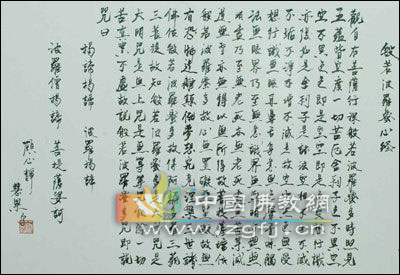 般若波羅蜜心經
觀自在菩薩行深般若波羅蜜多時照見
五蘊皆空度一切苦厄舍利子色不異
空空不異色色即是空空即是色受想行識
亦復如是舍利子是諸法空相不生不滅
不垢不淨不增不減是故空中無色無受
想行識無眼耳鼻舌身意無色聲香味觸
法無眼界乃至無意識界無無明亦無無
明盡乃至無老死亦無老死盡無苦集滅
道無智亦無得以無所得故菩提薩埵依
般若波羅蜜多故心無罣礙無罣礙故無
有恐怖遠離顛倒夢想究竟涅槃三世諸
佛依般若波羅蜜多故得阿耨多羅三藐
三菩提故知般若波羅蜜多是大神咒是
大明咒是無上咒是無等等咒能除一切
苦真實不虛故說般若波羅蜜多咒即說
咒曰
揭諦揭諦 波羅揭諦
波羅僧揭諦 菩提薩婆訶
中国佛教網